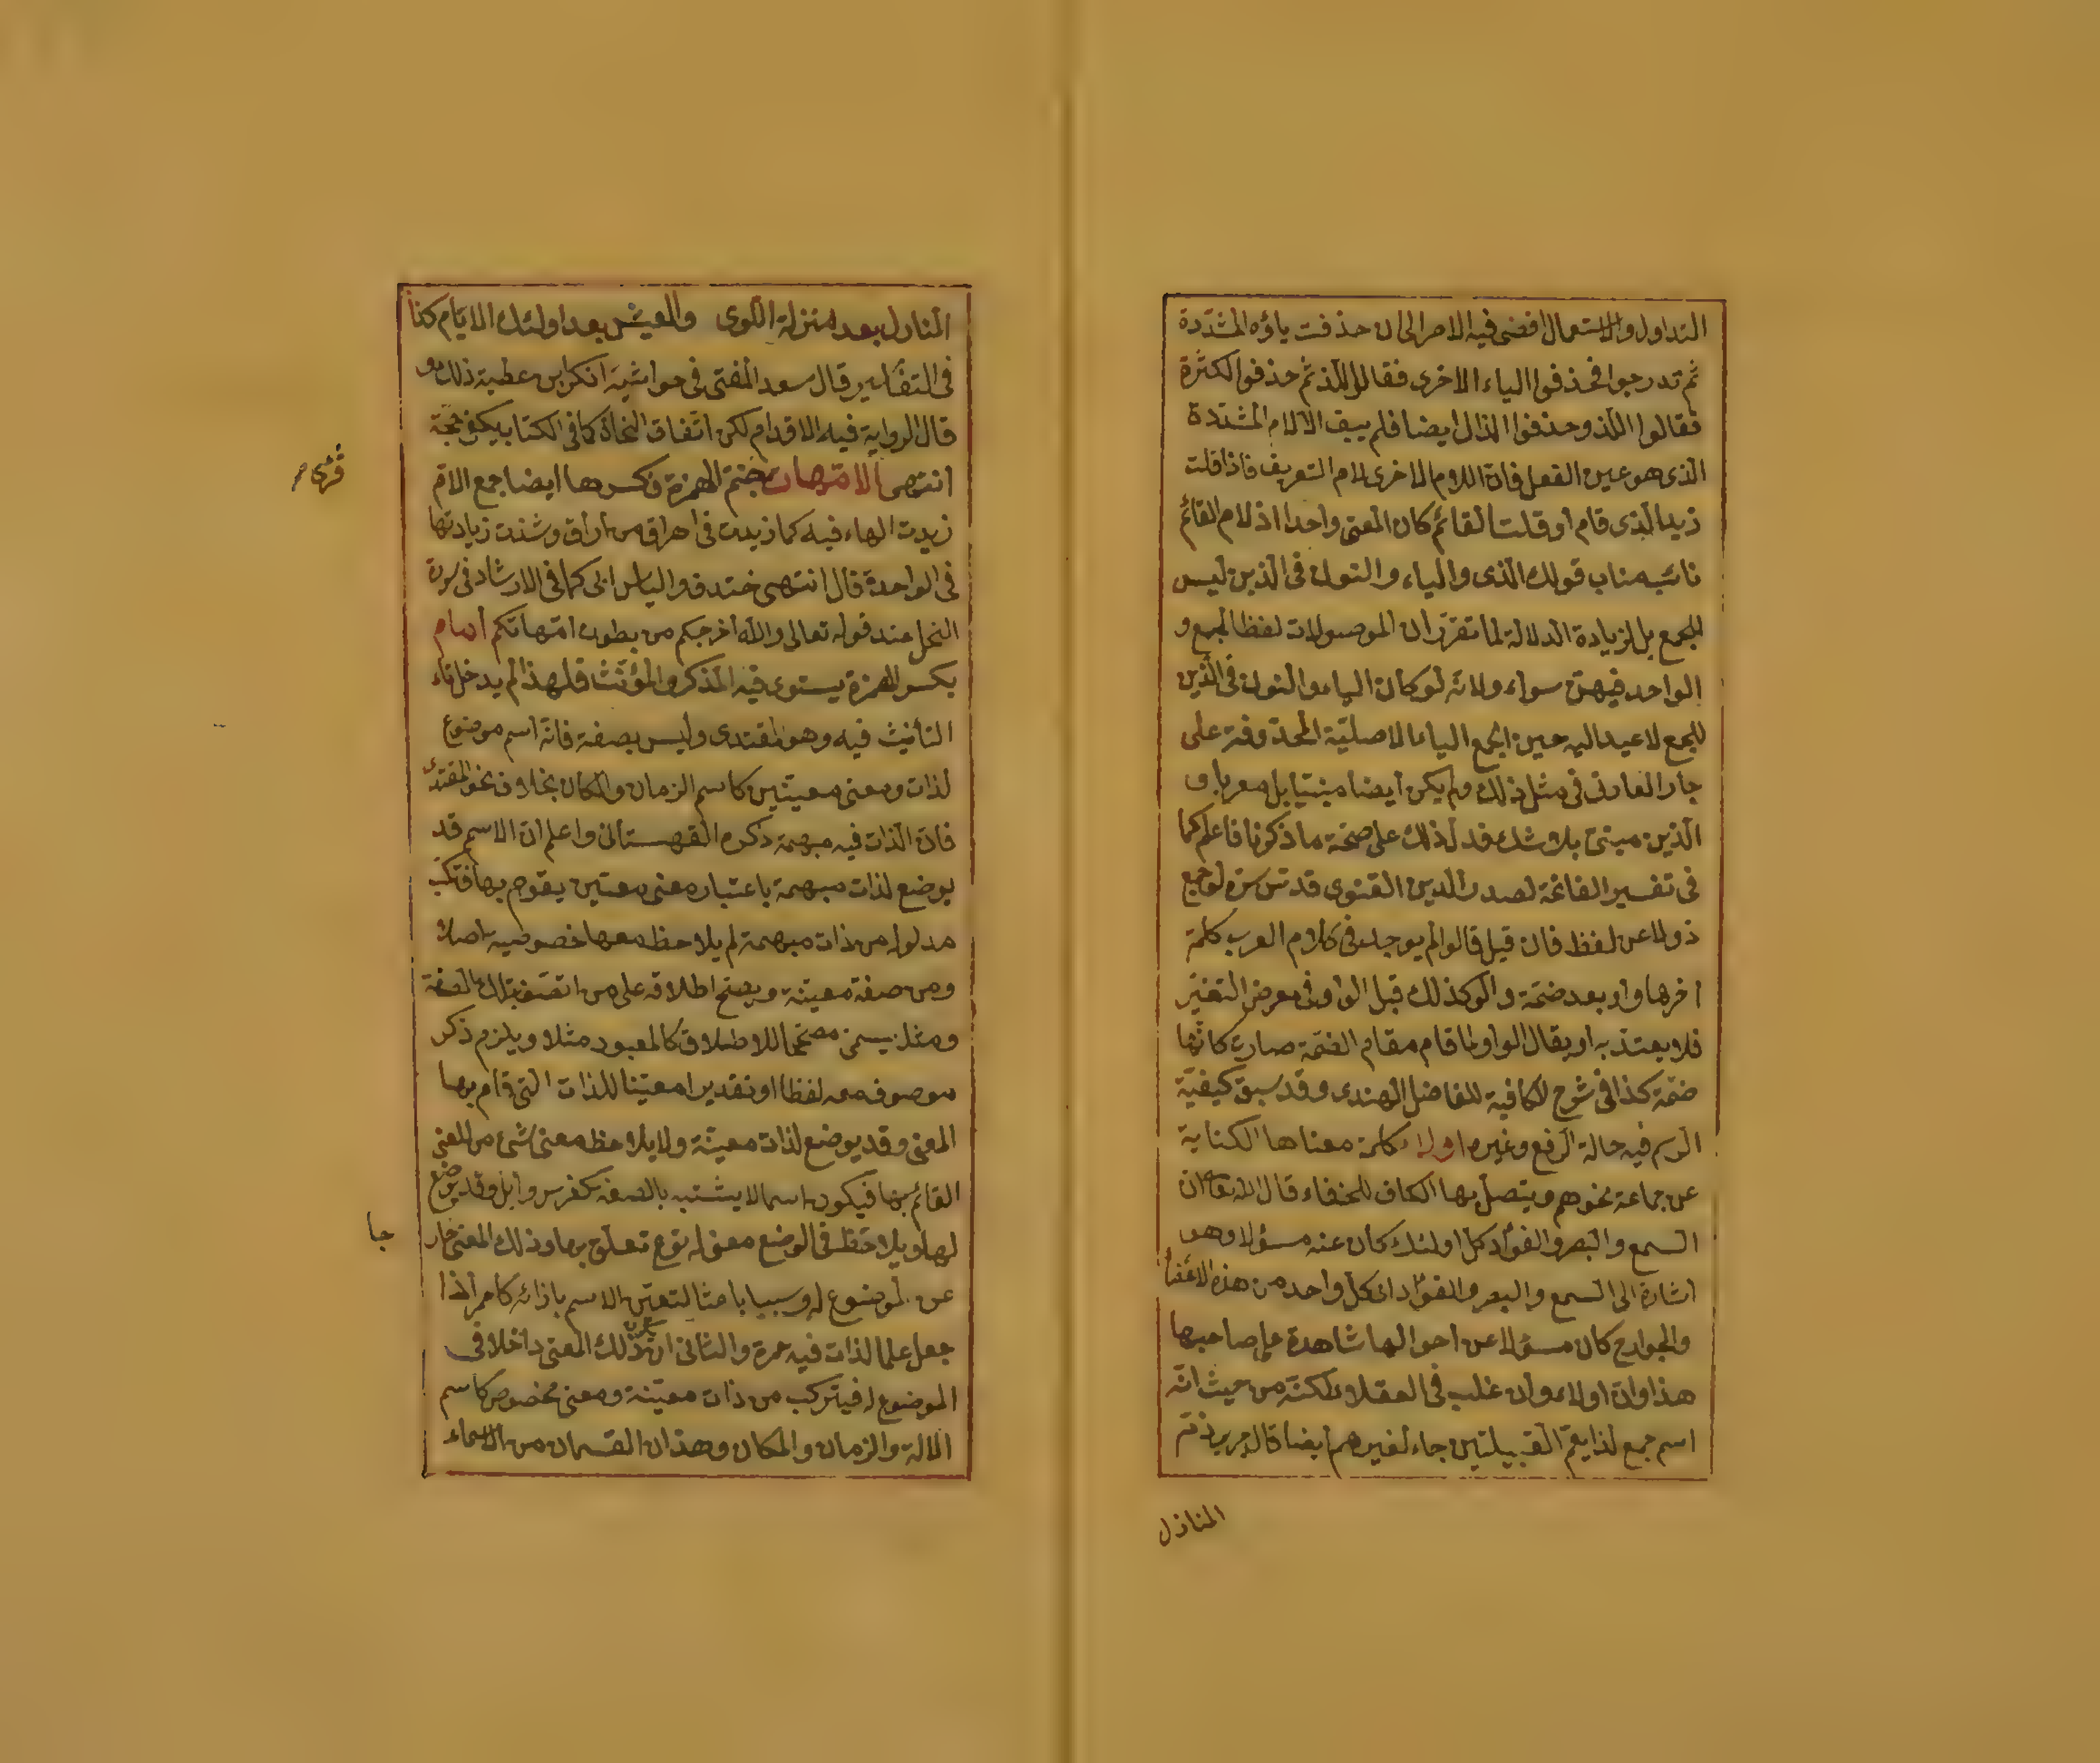 التداول والاستعمال افضى فيه الامر الى ان حذفت ياؤه المشددة
ثم تدرجوا فحذفوا الياء الاخرى فقالوا اللذ ثم حذفوا الكثرة
فقالوا اللذ وحذفوا الذال ايضا فلم يبق الا اللام المشددة
الذى هو عين الفعل فان اللام الاخرى لام التعريف فاذا قلت
زيد الذى قام او قلت القائم كان المعنى واحدا اذ لام القائم
نائبه مناب قولك الذى والياء والنون فى الذين ليس
للجمع بل لزيادة الدلالة لما تقرر ان الموصولات لفظ الجمع و
الواحد فيهن سواء ولانه لو كان الياء والنون فى الذين
للجمع لاعيد اليه حين الجمع الياء الاصلية المحذوفة على
جار العادة فى مثل ذلك ولم يكن ايضا مبنيا بل معربا و
الذين مبنى بلا شك فدل ذلك على صحة ما ذكرنا فاعلم كما
فى تفسير الفاتحة لصدر الدين القنوى قدس سره لو جمع
ذو لا عن لفظ فان قيل قالوا لم يوجد فى كلام العرب كلمة
اخرها واو بعد ضمة والو كذلك قبل الواو فى معرض التغير
فلا يعتد به او يقال الواو لما قام مقام الضمة صارت كانها
ضمة كذا فى شرح الكافية للفاضل الهندى وقد سبق كيفية
الرسم فيه حالة الرفع وغيره اولاء كلمة معناها الكناية
عن جماعة نحوهم ويتصل بها الكاف للخفاء قال الله تعالى ان
السمع والبصر والفؤاد كل اولئك كان عنه مسؤلا وهو
اشارة الى السمع والبصر والفؤاد اى كل واحد من هذه الاعضاء
والجوارح كان مسؤلا عن احوالها شاهدة على صاحبها
هذا وان اولاء وان غلب فى العقلاء لكنه من حيث انه
اسم جمع لذا يعم القبيلتين جاء لغيرهم ايضا قال جرير ذم
المنازل
المنازل بعد منزلة اللوى والعيش بعد اولئك الايام كذا
فى التفاسير قال سعد المفتى فى حواشيه انكر ابن عطية ذلك و
قال الرواية فيه الاقدام لكن اتفاق النحاة كما فى الكتاب يكون حجة
انتهى الامهات بضم الهمزة وكسرها ايضا جمع الام
قرئ
زيدت الهاء فيه كما زيدت فى اهراق من اراق وشذت زيادتها
فى الواحدة قال انتهى خندف والياس ابى كما فى الارشاد فى سورة
النحل عند قوله تعالى والله اخرجكم من بطون امهاتكم امام
بكسر الهمزة يستوى فيه المذكر والمؤنث فلهذا لم يدخل تاء
التأنيث فيه وهو المقتدى وليس بصفة فانه اسم موضوع
لذات ومعنى معينين كاسم الزمان والمكان بخلاف نحو المقتدى
فان الذات فيه مبهمة ذكره القهستانى واعلم ان الاسم قد
يوضع لذات مبهمة باعتبار معنى معين يقوم بها فتركب
مدلوله من ذات مبهمة لم يلاحظ معها خصوصية اصلا
ومن صفة معينة ويصح اطلاقه على من اتصف بتلك الصفة
ومثله يسمى مصححا للاطلاق كالمعبود مثلا ويلزم ذكر
موصوف معه لفظا او تقديرا معينا للذات التى قام بها
المعنى وقد يوضع لذات معينة ولا يلاحظ معنى شئ من المعنى
القائم بها فيكون اسما لا يشتبه بالصفة كفرس وابل وقد يوضع
لها ويلاحظ فى الوضع معنى له نوع تعلق بها وذلك المعنى خار
جا
عن الموضوع له وسببا باعثا لتعين الاسم بازائه كاحمر اذا
جعل علما لذات فيه حمرة والثانى ان يكون ذلك المعنى داخلا فى
الموضوع له فيتركب من ذات معينة ومعنى مخصوص كاسم
الالة والزمان والمكان وهذان القسمان من الاسماء